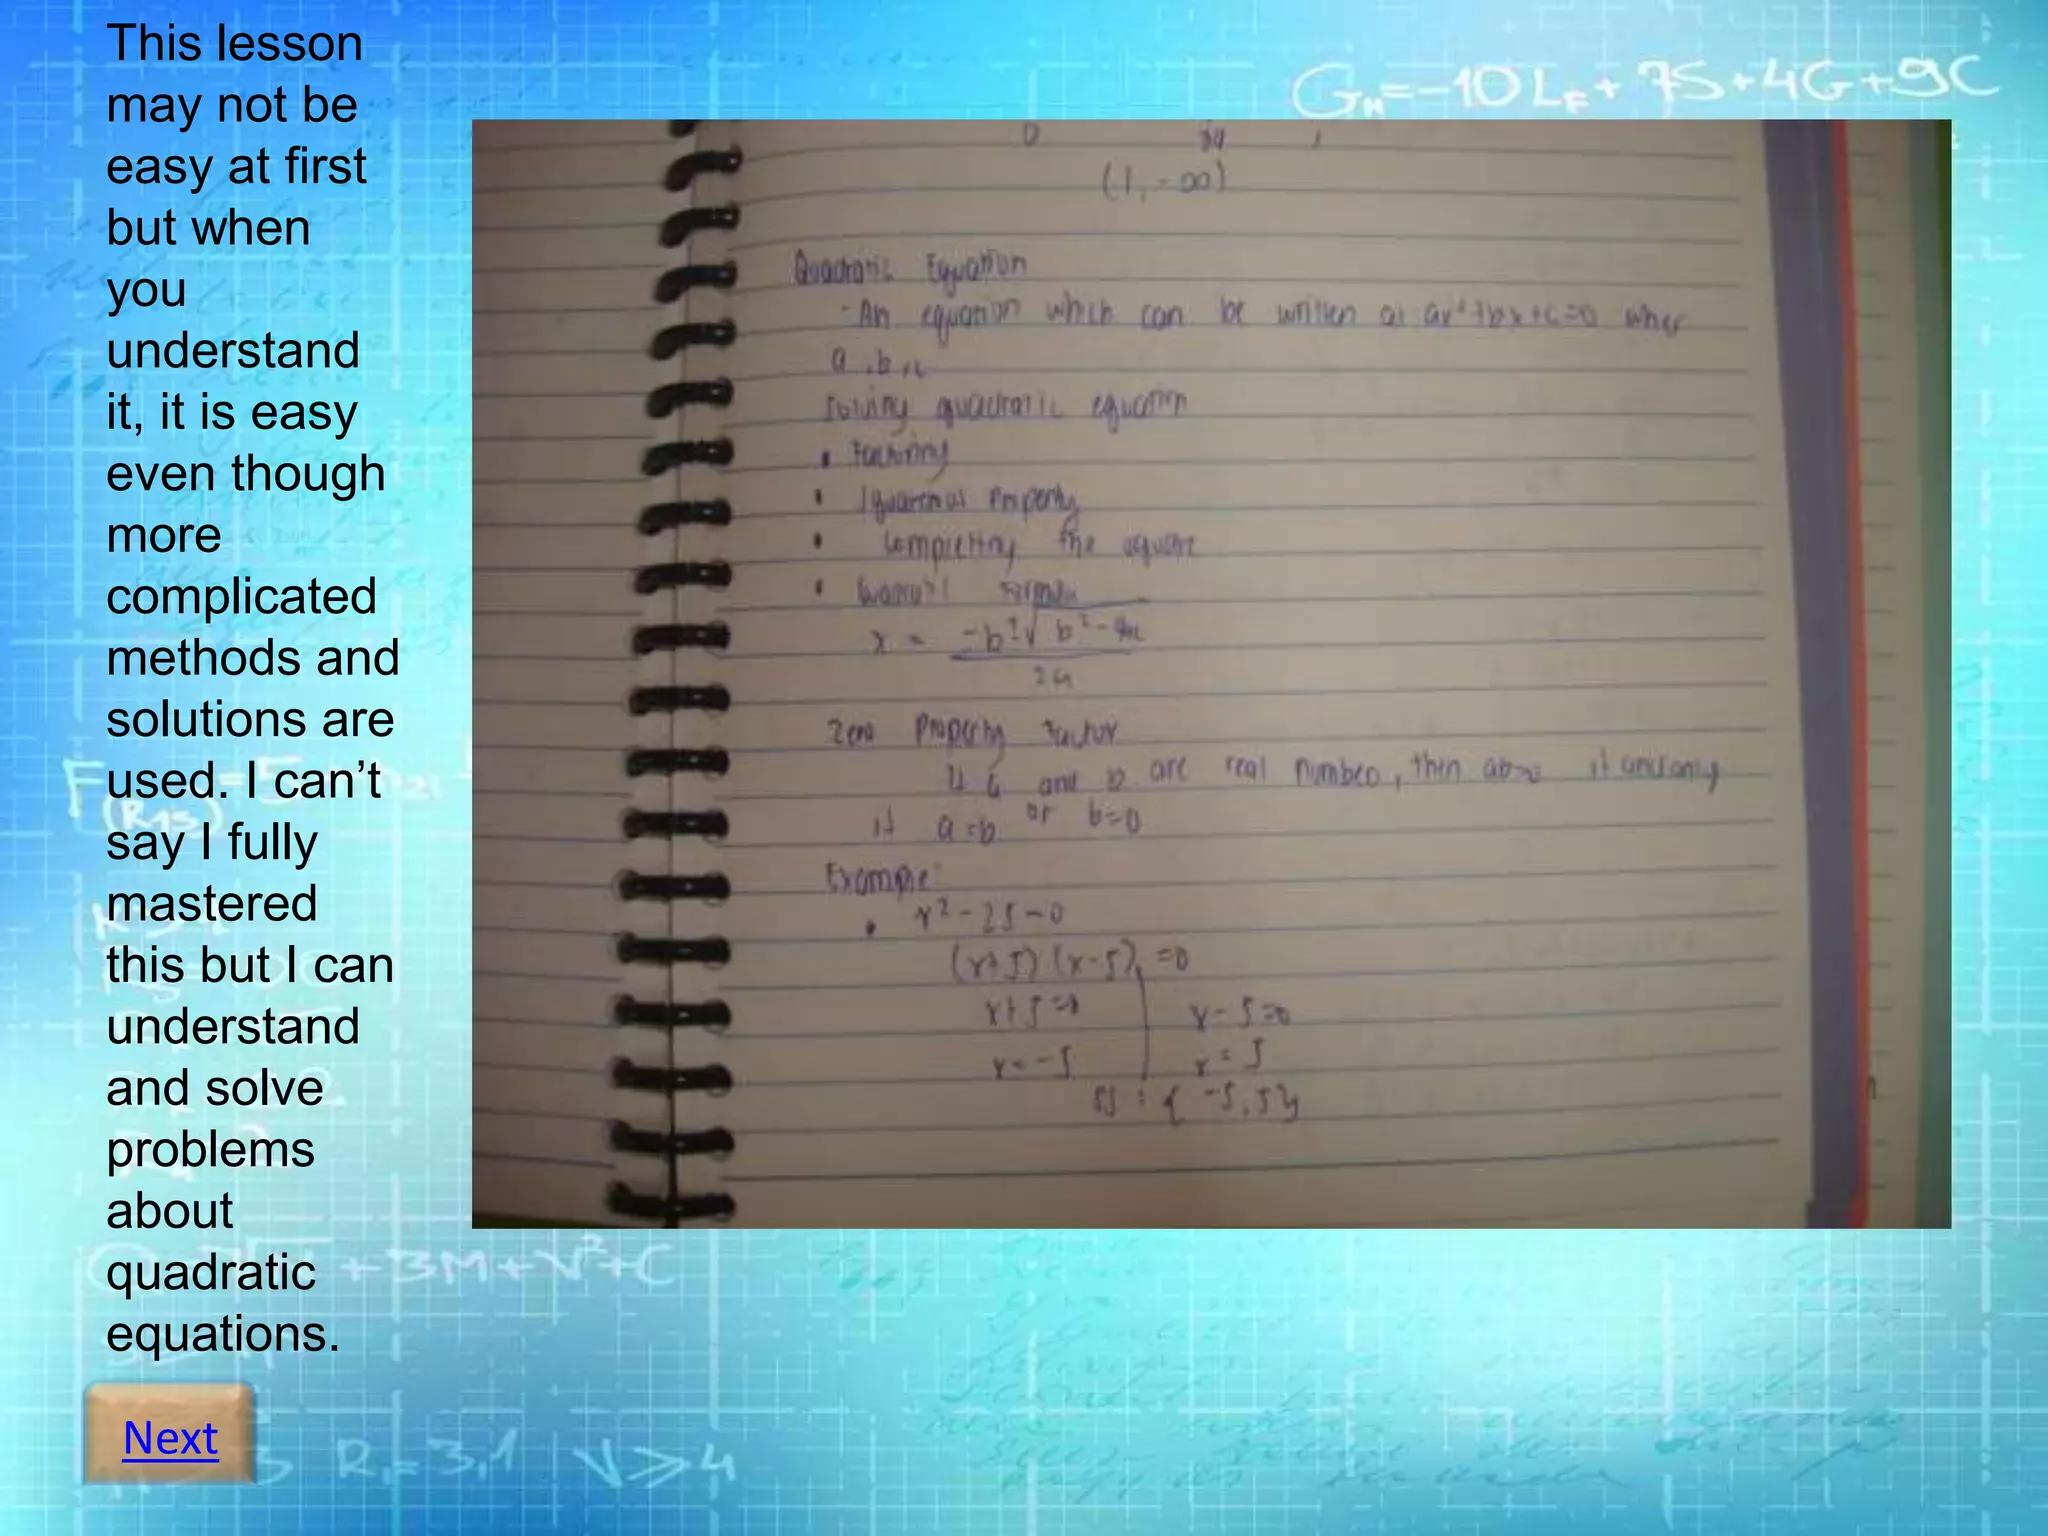 This lesson
may not be
easy at first
but when
you
understand
it, it is easy
even though
more
complicated
methods and
solutions are
used. I can’t
say I fully
mastered
this but I can
understand
and solve
problems
about
quadratic
equations.
Next
G_H=-10L_F+7S+4G+9C
(1, -∞)
Quadratic Equation
- An equation which can be written as ax²+bx+c=0 where
a, b, c
Solving quadratic equation
• Factoring
• Property
• Completing the square
• Formula
x = -b±√b²-4ac
2a
Zero Property Factor
If a and b are real number, then ab=0 if and only
if a=b or b=0
Example:
• x²-25=0
(x+5)(x-5)=0
x+5=0 x-5=0
x=-5 x=5
SS: {-5,5}
+3M+V²+C
R_F=3,1 V≥4